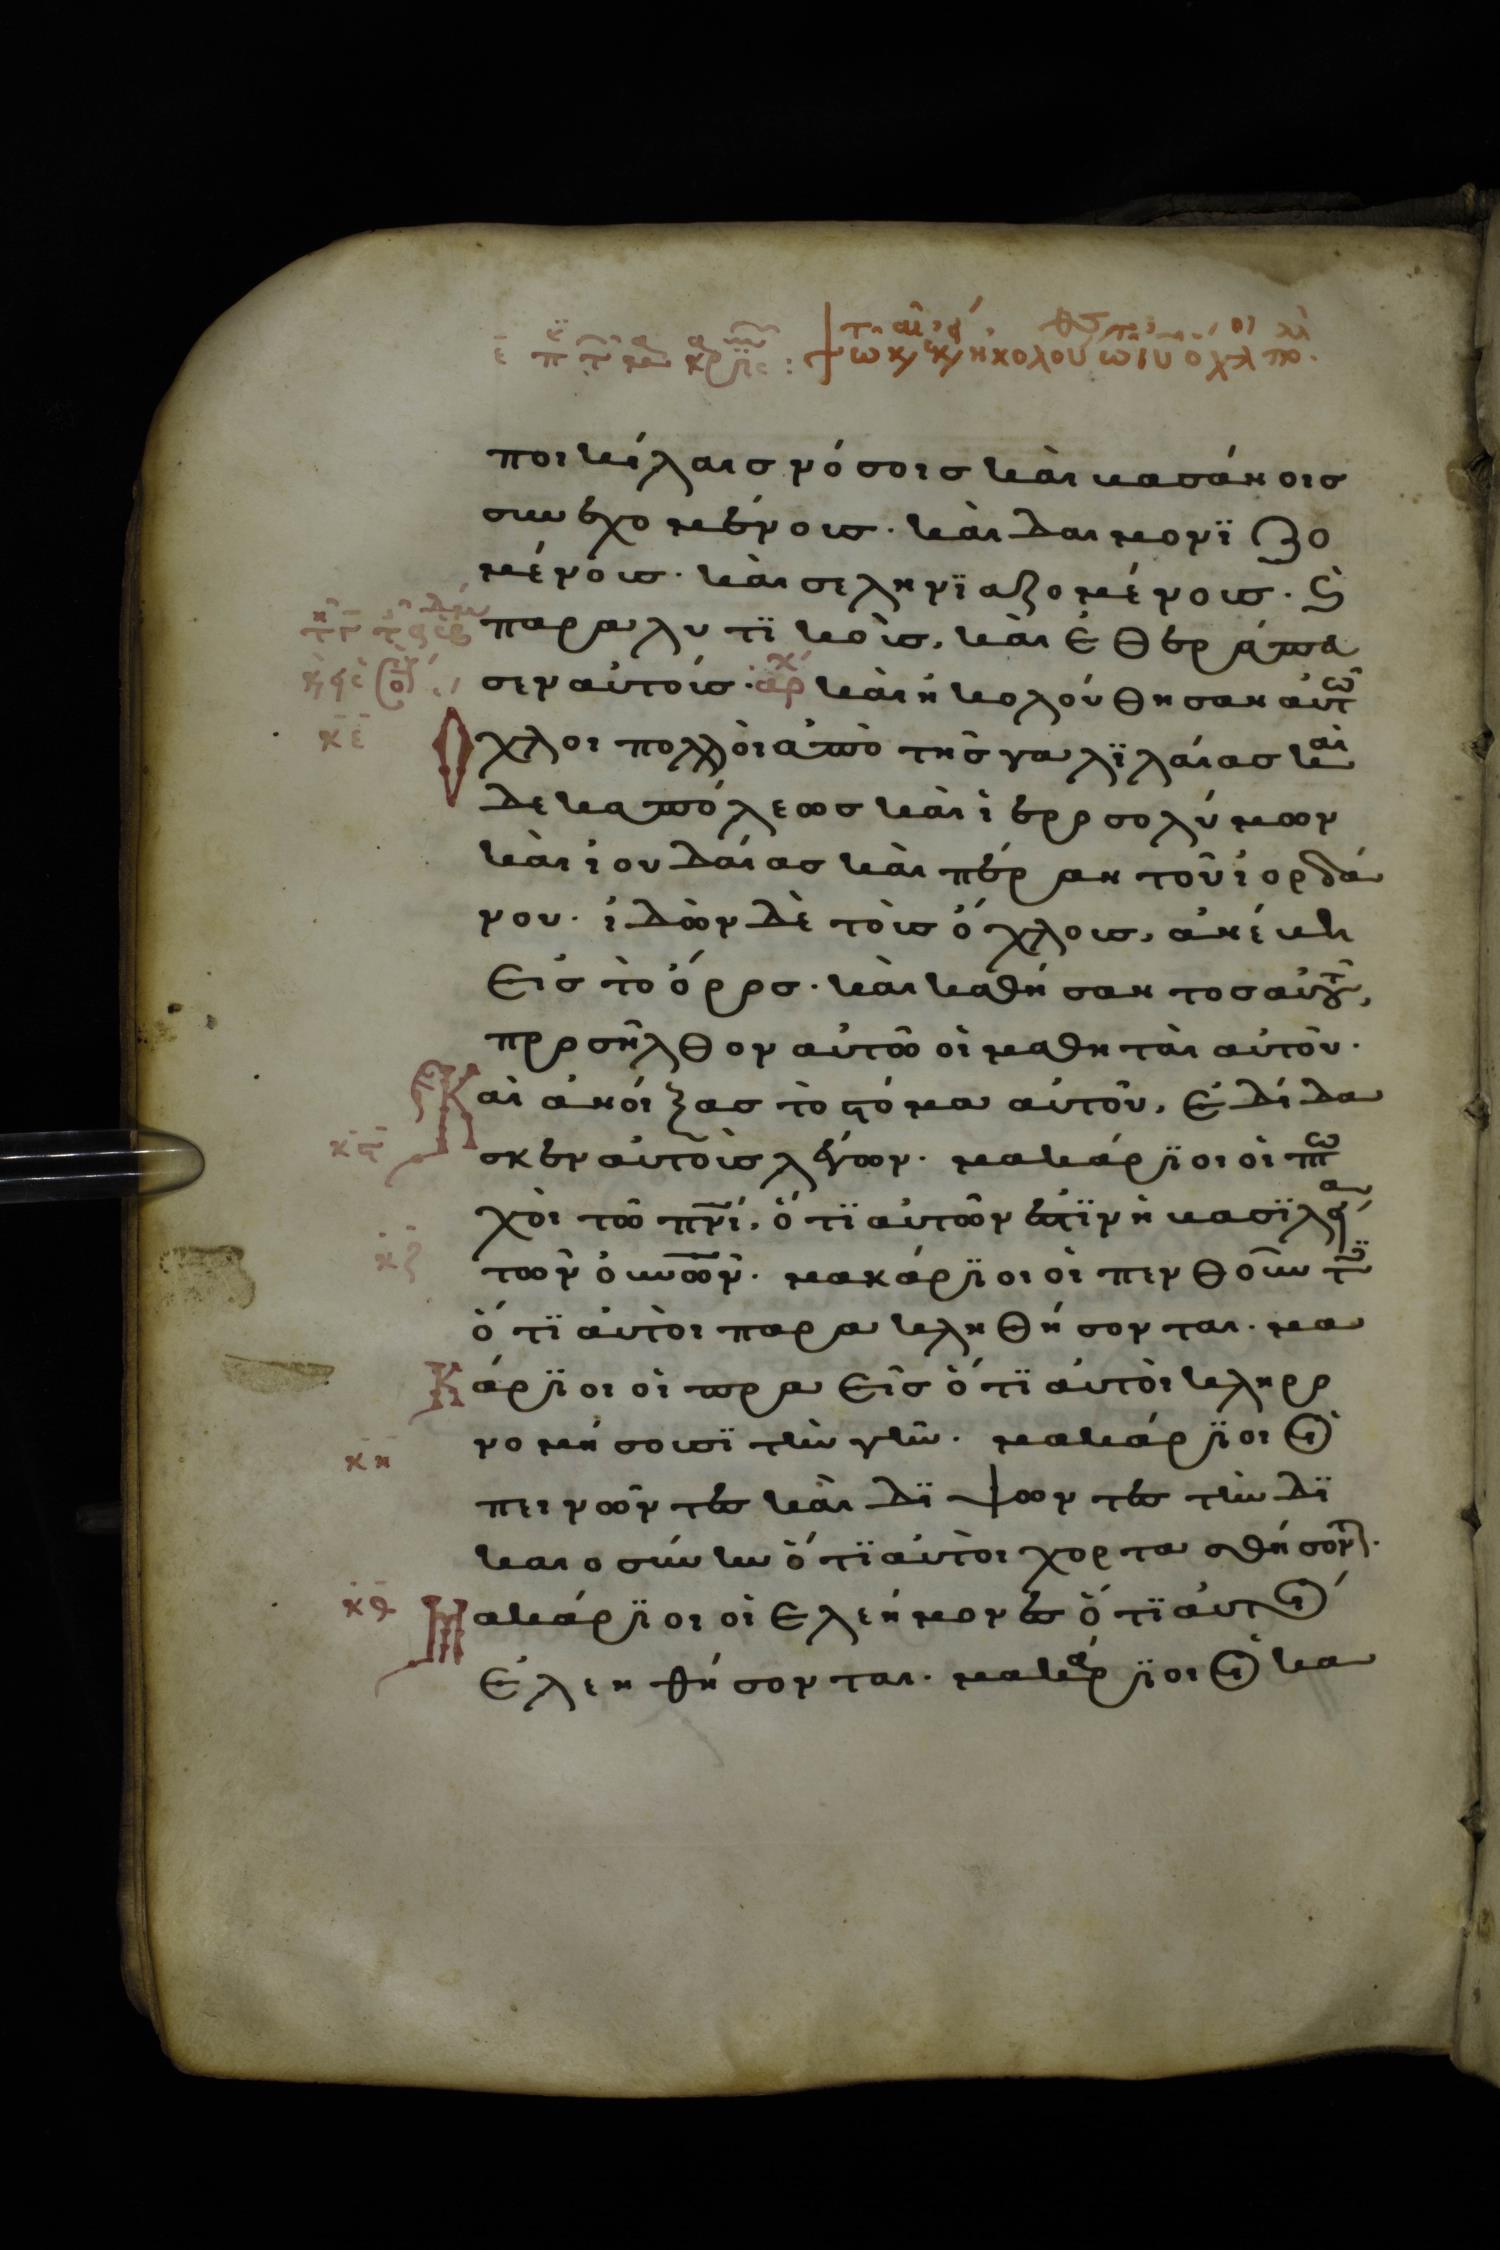 ποικίλαισ νόσοισ καὶ βασάνοισ
συνεχομένοισ· καὶ δαιμονϊζο
μένοισ· καὶ σεληνϊαζομένοισ· ϗ
παραλυτϊκοὺσ, καὶ ἐθεράπευ
σεν αὐτούσ· αρχ καὶ ἠκολούθησαν αὐτῶ
ὄχλοι πολλοὶ ἀπὸ τῆσ γαλϊλαίασ καὶ
δεκαπόλεωσ καὶ ἱεροσολύμων
καὶ ἰουδαίασ καὶ πέραν τοῦ ἰορδά
νου· ἰδὼν δὲ τοὺσ ὄχλουσ, ἀνέβη
εἰσ τὸ ὄροσ· καὶ καθήσαντοσ αὐτοῦ,
προσῆλθον αὐτῶ οἱ μαθηταὶ αὐτοῦ·
Καὶ ἀνοίξασ τὸ ϛόμα αὐτοῦ, ἐδίδα
κϛ
σκεν αὐτοὺσ λέγων· μακάρϊοι οἱ πτω
χοὶ τῶ πνι, ὅτϊ αὐτῶν ἐστϊν ἡ βασϊλεία
κζ
τῶν οὐνῶν· μακάρϊοι οἱ πενθοῦντεσ
ὅτϊ αὐτοὶ παρακληθήσονται· μα
Κάρϊοι οἱ πραεῖσ ὅτϊ αὐτοὶ κληρο
κη
νομήσουσϊ τὴν γῆν· μακάρϊοι οἱ
πεινῶντεσ καὶ δϊψῶντεσ τὴν δϊ
καιοσύνην ὅτϊ αὐτοὶ χορτασθήσονται·
κθ
Μακάρϊοι οἱ ἐλεήμονεσ ὅτϊ αὐτοὶ
ἐλεηθήσονται· μακάρϊοι οἱ κα